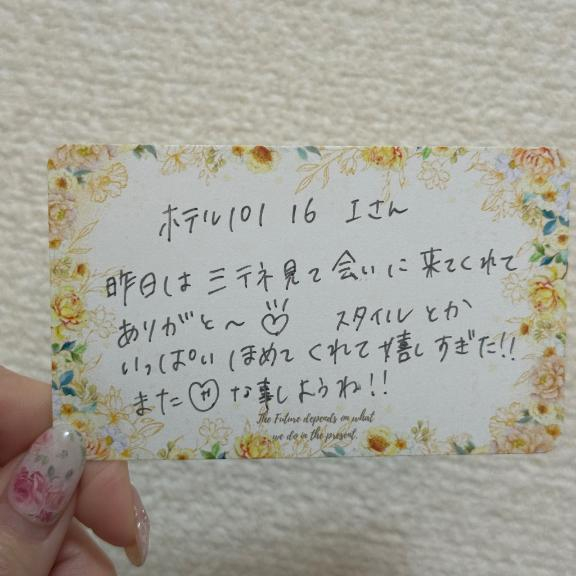 ホテル101 16 Iさん
昨日はミテネ見て会いに来てくれて
ありがと〜♡ スタイルとか
いっぱいほめてくれて嬉しすぎた!!
また♡な事しようね!!
The Future depends on what
we do in the present.